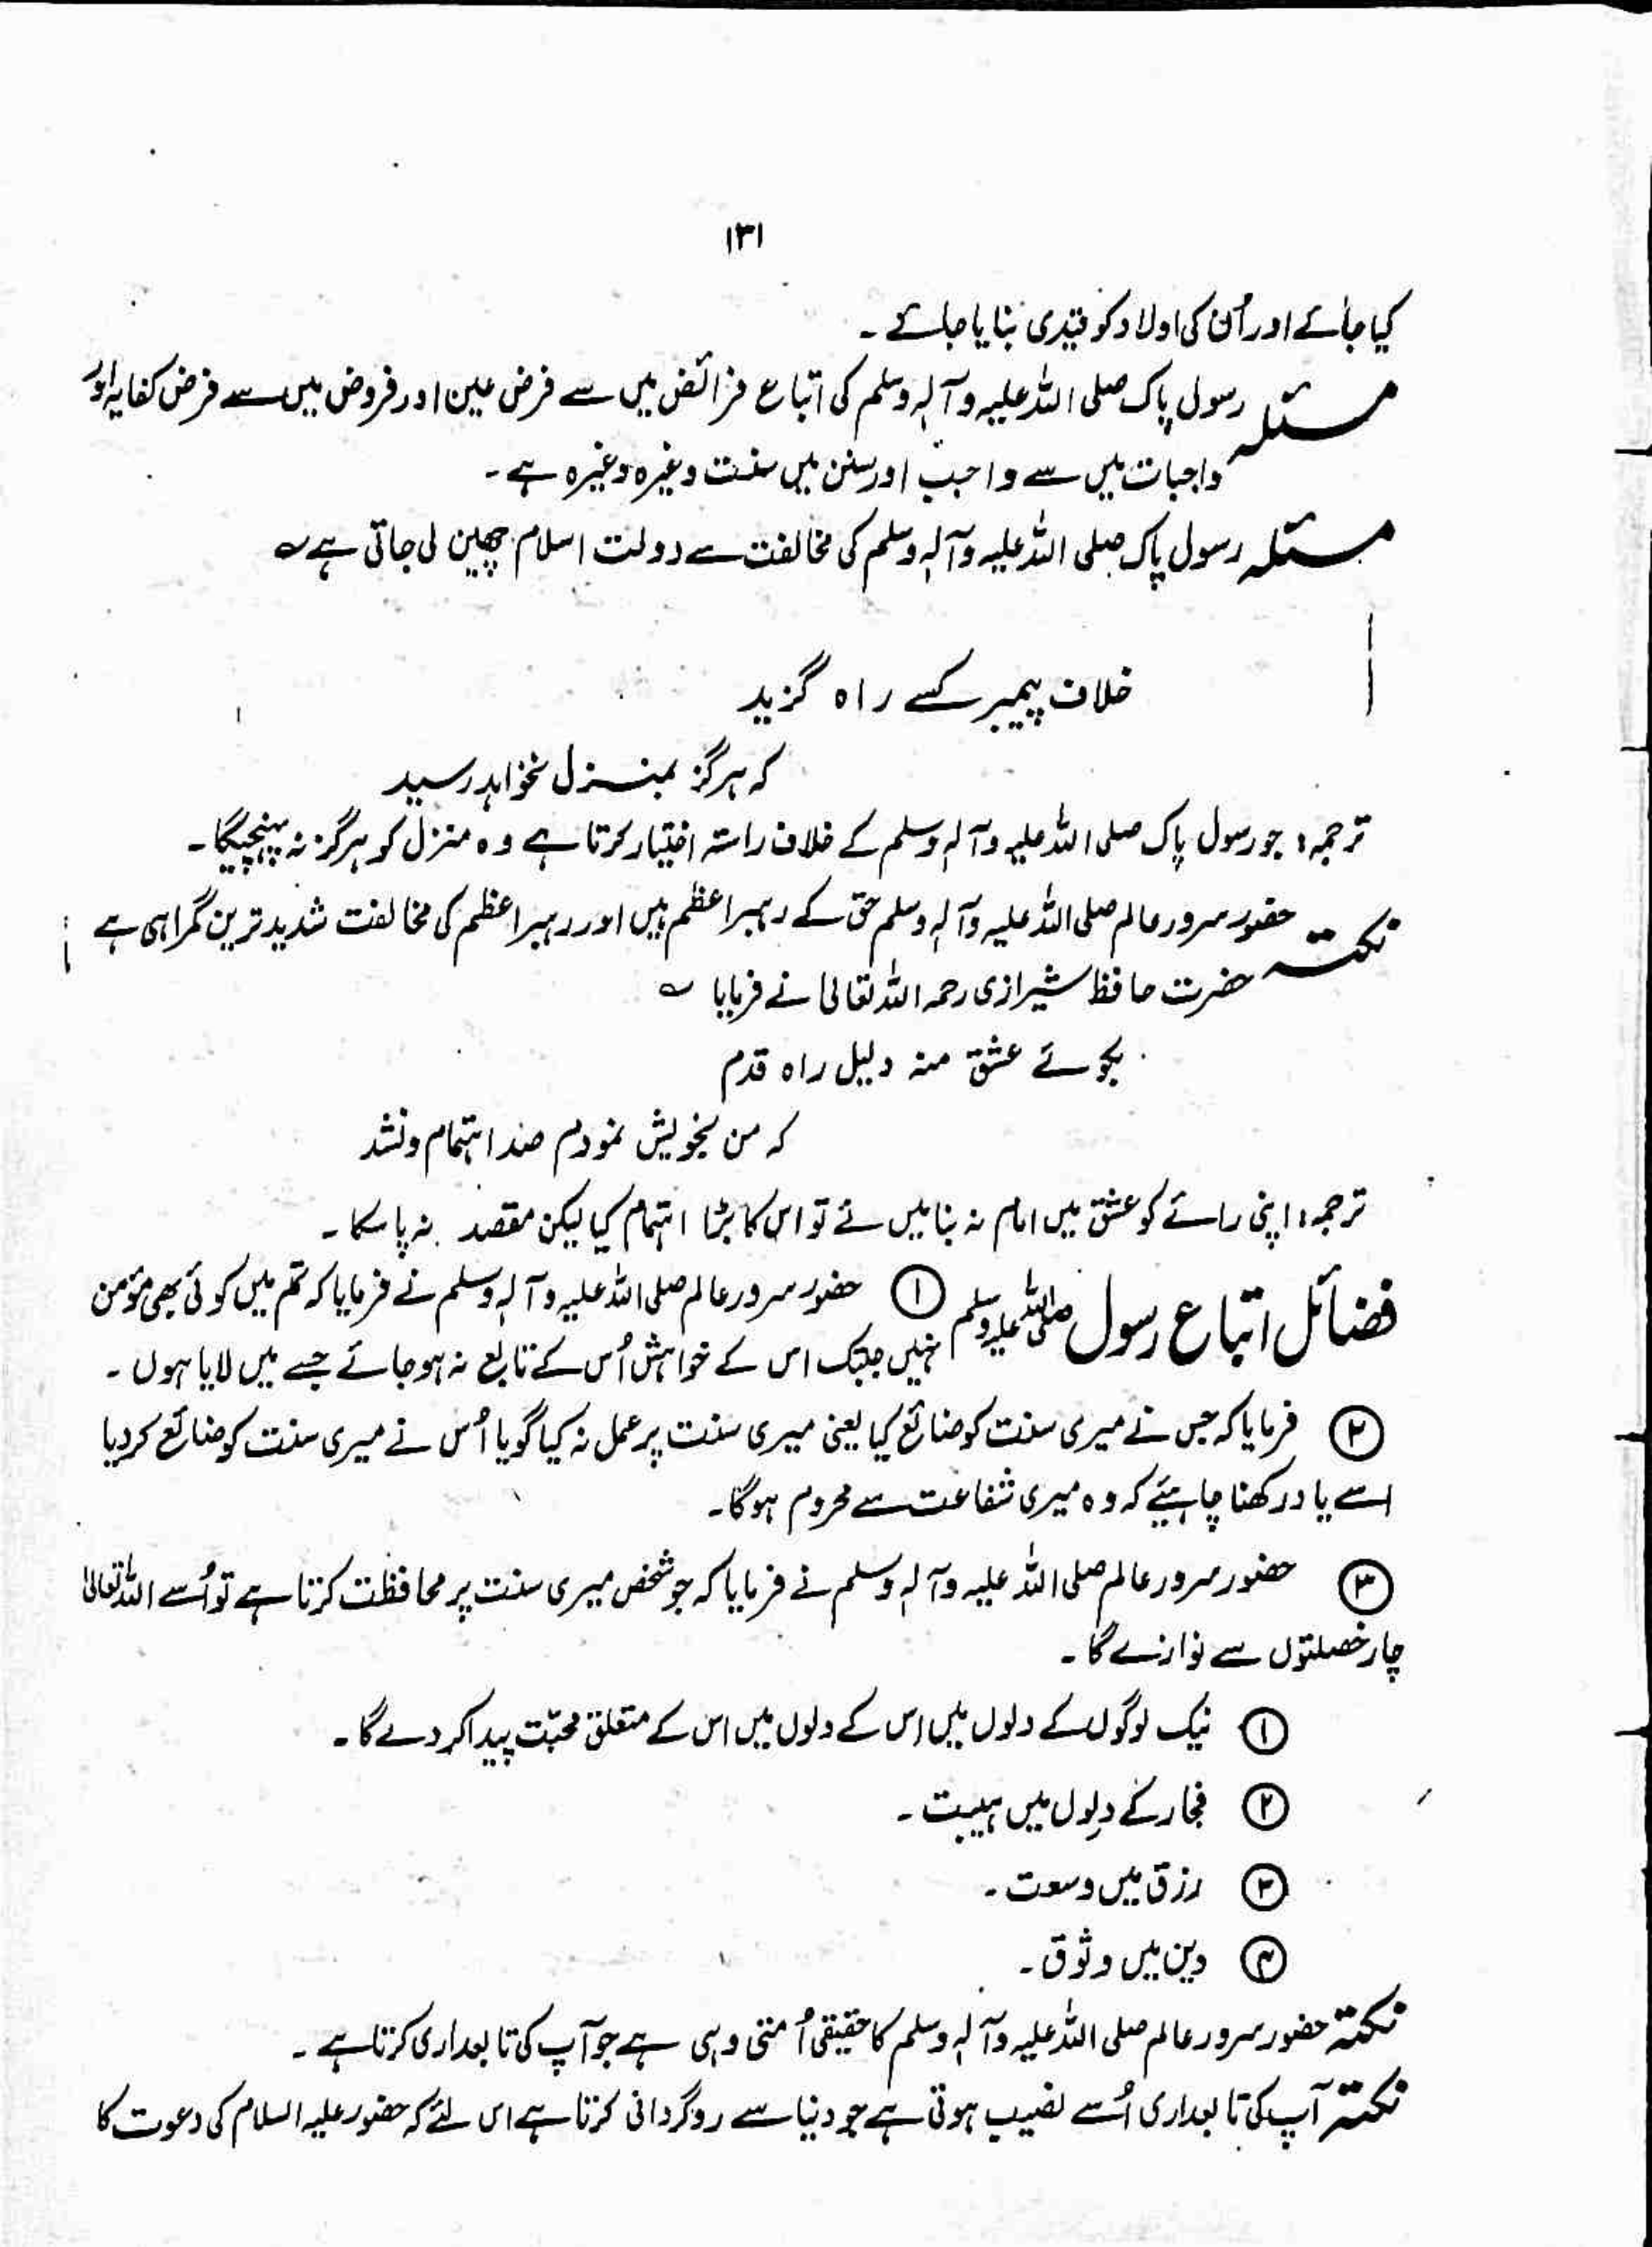 ۱۳۱
کیا جائے اور اُن کی اولاد کو قیدی بنایا جائے ۔
مسئلہ رسول پاک صلی اللہ علیہ وآلہٖ وسلم کی اتباع فرائض میں سے فرض عین اور فروض میں سے فرض کفایہ اور
واجبات میں سے واجب اور سنن میں سنت وغیرہ وغیرہ ہے ۔
مسئلہ رسول پاک صلی اللہ علیہ وآلہٖ وسلم کی مخالفت سے دولت اسلام چھین لی جاتی ہے ؎
خلاف پیمبر کسے راہ گزید
کہ ہرگز بمنزل نخواہد رسید
ترجمہ: جو رسول پاک صلی اللہ علیہ وآلہٖ وسلم کے خلاف راستہ اختیار کرتا ہے وہ منزل کو ہرگز نہ پہنچیگا ۔
نکتہ حضور سرور عالم صلی اللہ علیہ وآلہٖ وسلم حق کے رہبر اعظم ہیں اور رہبر اعظم کی مخالفت شدید ترین گمراہی ہے
حضرت حافظ شیرازی رحمہ اللہ تعالیٰ نے فرمایا ؎
بکوئے عشق منہ دلیل راہ قدم
کہ من بخویش نمودم صد اہتمام ونشد
ترجمہ: اپنی رائے کو عشق میں امام نہ بنا میں نے تو اس کا بڑا اہتمام کیا لیکن مقصد نہ پا سکا ۔
فضائل اتباع رسول صلی اللہ علیہ وسلم ① حضور سرور عالم صلی اللہ علیہ وآلہٖ وسلم نے فرمایا کہ تم میں کوئی بھی مؤمن
نہیں جبتک اس کے خواہش اُس کے تابع نہ ہو جائے جسے میں لایا ہوں ۔
② فرمایا کہ جس نے میری سنت کو ضائع کیا یعنی میری سنت پر عمل نہ کیا گویا اُس نے میری سنت کو ضائع کر دیا
اسے یاد رکھنا چاہیئے کہ وہ میری شفاعت سے محروم ہوگا ۔
③ حضور سرور عالم صلی اللہ علیہ وآلہٖ وسلم نے فرمایا کہ جو شخص میری سنت پر محافظت کرتا ہے تو اُسے اللہ تعالیٰ
چار خصلتوں سے نوازے گا ۔
① نیک لوگوں کے دلوں میں اس کے دلوں میں اس کے متعلق محبّت پیدا کر دے گا ۔
② فجار کے دِلوں میں ہیبت ۔
③ رزق میں وسعت ۔
④ دین میں وثوق ۔
نکتہ حضور سرور عالم صلی اللہ علیہ وآلہٖ وسلم کا حقیقی اُمتی وہی ہے جو آپ کی تابعداری کرتا ہے ۔
نکتہ آپ کی تابعداری اُسے نصیب ہوتی ہے جو دنیا سے روگردانی کرتا ہے اس لئے کہ حضور علیہ السلام کی دعوت کا